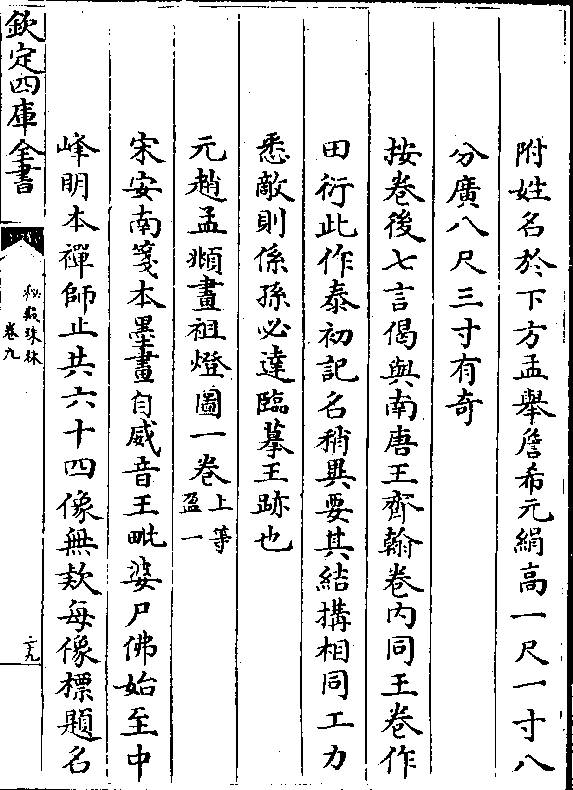 附姓名於下方孟舉詹希元絹高一尺一寸八
分廣八尺三寸有奇
按卷後七言偈與南唐王齊翰卷内同王卷作
田衍此作泰初記名稍異要其結搆相同工力
悉敵則係孫必達臨摹王跡也
元趙孟頫畫祖燈圖一卷上等盈一
宋安南箋本墨畫自威音王毗婆尸佛始至中
峰明本禪師止共六十四像無欵每像標題名
欽定四庫全書
秘殿珠林
卷九
二九